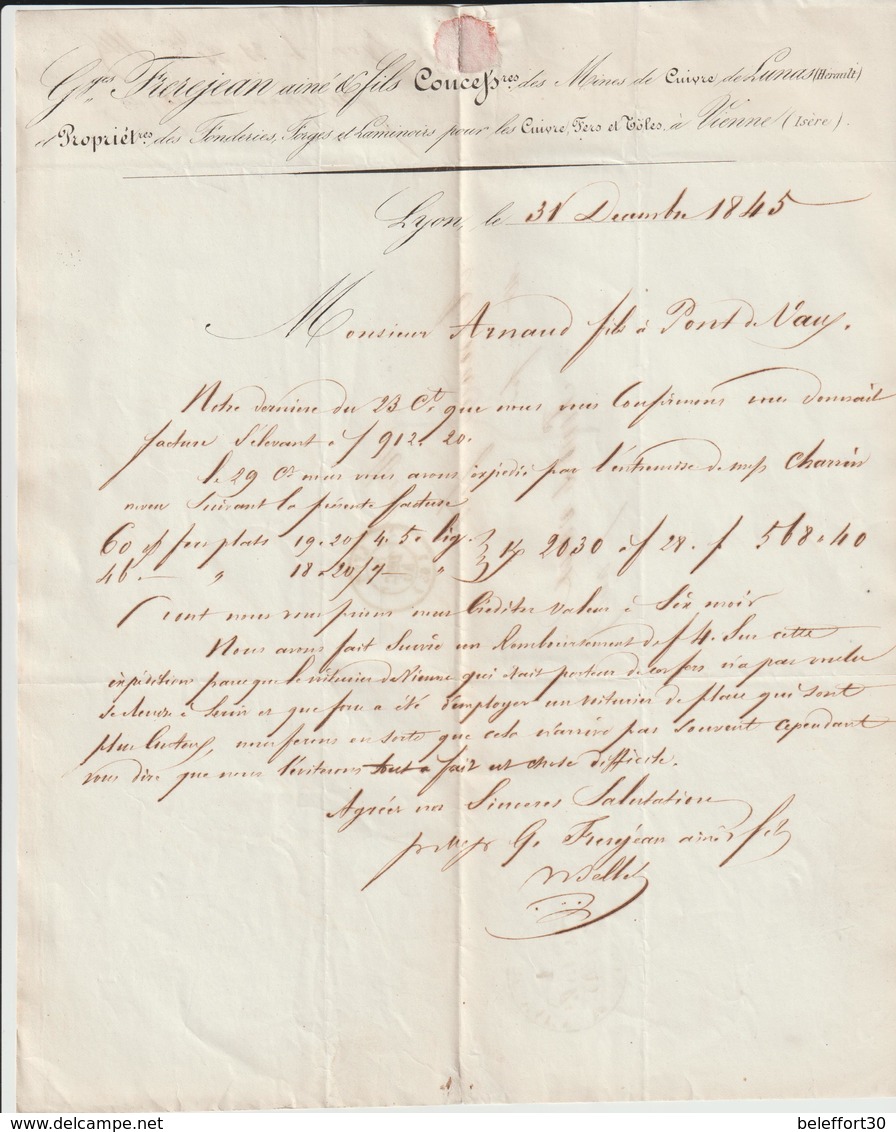 Gges Frerejean ainé & fils Concessres des Mines de Cuivre, de Lunas (Hérault)
et Propriétres des Fonderies, Forges et Laminoirs pour les Cuivre, Fers et Tôles, à Vienne (Isère).
Lyon, le 31 Decembre 1845
Monsieur Arnaud fils à Pont de Vaux.
Notre derniere du 23 Ct. que nous vous Confirmons vous donnait
facture S'elevant à f 912. 20.
le 29 Ct nous vous avons expedié par l'entremise de mrs Charrin
neveu Suivant la présente facture
60 fer plats 19. 20/4. 5. lig. } K 2030 à f 28. f. 568. 40
46. — " 18 à 20/7 — "
dont nous vous prions nous Créditer valeur à Six mois
Nous avons fait Suivre un Remboursement de f 4. Sur cette
expédition parce que le voiturier de Vienne qui était porteur de ces fers n'a pas voulu
Se rendre à et que force a été d'employer un voiturier de place qui sont
plus Couteux, nous ferons en sorte que cela n'arrive pas souvent cependant
vous dire que nous l'éviterons tout à fait est chose difficile.
Agréez nos Sinceres Salutations
G. Frerejean ainé & fils